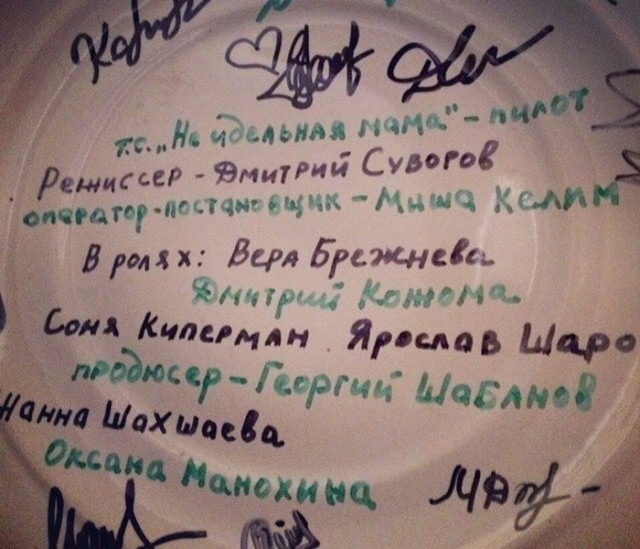 т.с. „Не идеальная мама" - пилот
Режиссер - Дмитрий Суворов
оператор-постановщик - Миша Келим
В ролях: Вера Брежнева
Дмитрий Кожома
Соня Киперман Ярослав Шаро
продюсер - Георгий Шабанов
Жанна Шахшаева
Оксана Манохина